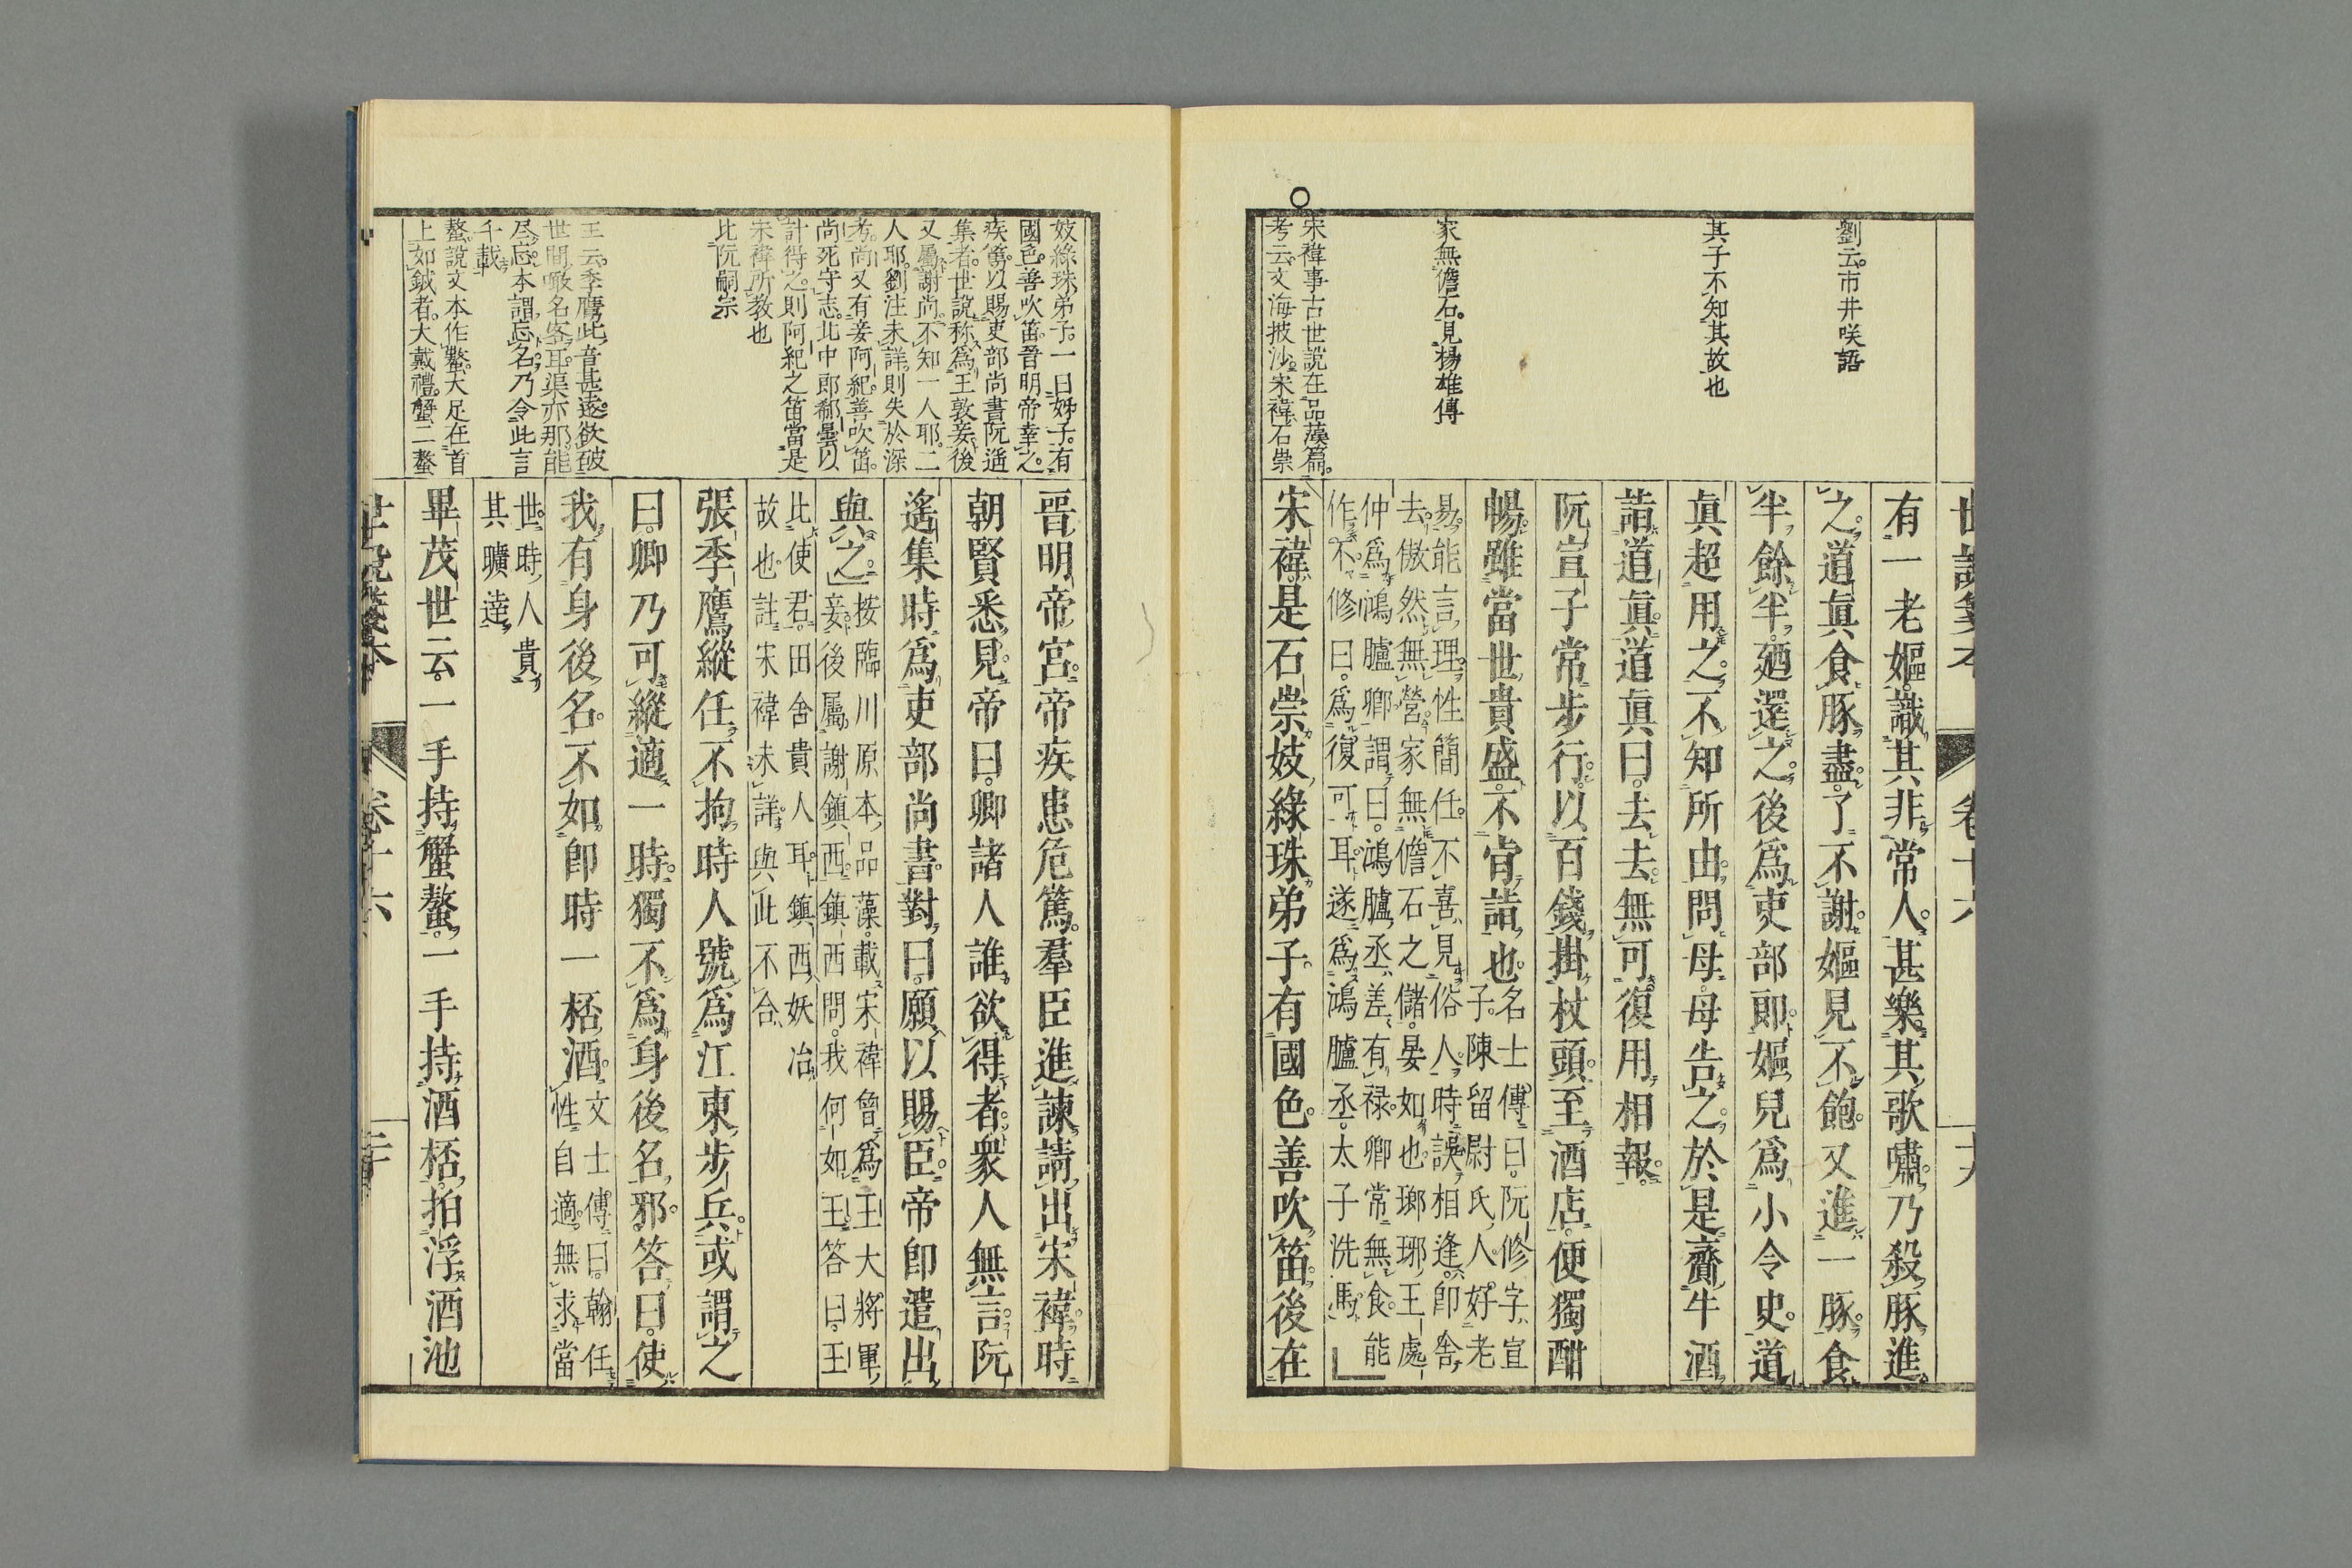 世說箋本
卷十六
十九
劉云市井咲語
其子不知其故也
家無儋石見楊雄傳
宋褘事古世說在品藻篇
考云文海披沙宋褘石崇
有一老嫗識其非常人甚樂其歌嘯乃殺豚進
之道眞食豚盡了不謝嫗見不飽又進一豚食
半餘半廼還之後爲吏部郎嫗兒爲小令史道
眞超用之不知所由問母母告之於是齎牛酒
詣道眞道眞曰去去無可復用相報
阮宣子常步行以百錢掛杖頭至酒店便獨酣
暢雖當世貴盛不肯詣也
名士傳曰阮修字宣
子陳留尉氏人好老
易能言理性簡任不喜見俗人時誤相逢卽舍
去傲然無營家無儋石之儲晏如也瑯琊王處
仲爲鴻臚卿謂曰鴻臚丞差有祿卿常無食能
作不修曰爲復可耳遂爲鴻臚丞太子洗馬
宋褘是石崇妓綠珠弟子有國色善吹笛後在
妓綠珠弟子一曰姊子有
國色善吹笛晉明帝幸之
疾篤以賜吏部尚書阮遙
集者世說称爲王敦妾後
又屬謝尚不知一人耶二
人耶劉注未詳則失於深
考尚又有妾阿紀善吹笛
尚死守志北中郎郗曇以
計得之則阿紀之笛當是
宋褘所教也
比阮嗣宗
王云季鷹此音甚遠欲破
世間啾名客耳渠亦那能
尽忘本謂忘名乃令此言
千載
螯說文本作鰲大足在首
上如鉞者大戴禮蟹二螯
晉明帝宮帝疾患危篤羣臣進諫請出宋褘時
朝賢悉見帝曰卿諸人誰欲得者衆人無言阮
遙集時爲吏部尚書對曰願以賜臣帝卽遣出
與之
按臨川原本品藻載宋褘曾爲王大將軍
妾後屬謝鎮西鎮西問我何如王答曰王
比使君田舍貴人耳鎮西妖冶
故也註宋褘未詳與此不合
張季鷹縱任不拘時人號爲江東步兵或謂之
曰卿乃可縱適一時獨不爲身後名邪答曰使
我有身後名不如卽時一桮酒
文士傳曰翰任
性自適無求當
世時人貴
其曠達
畢茂世云一手持蟹螯一手持酒桮拍浮酒池
世說箋本
卷十六
二十